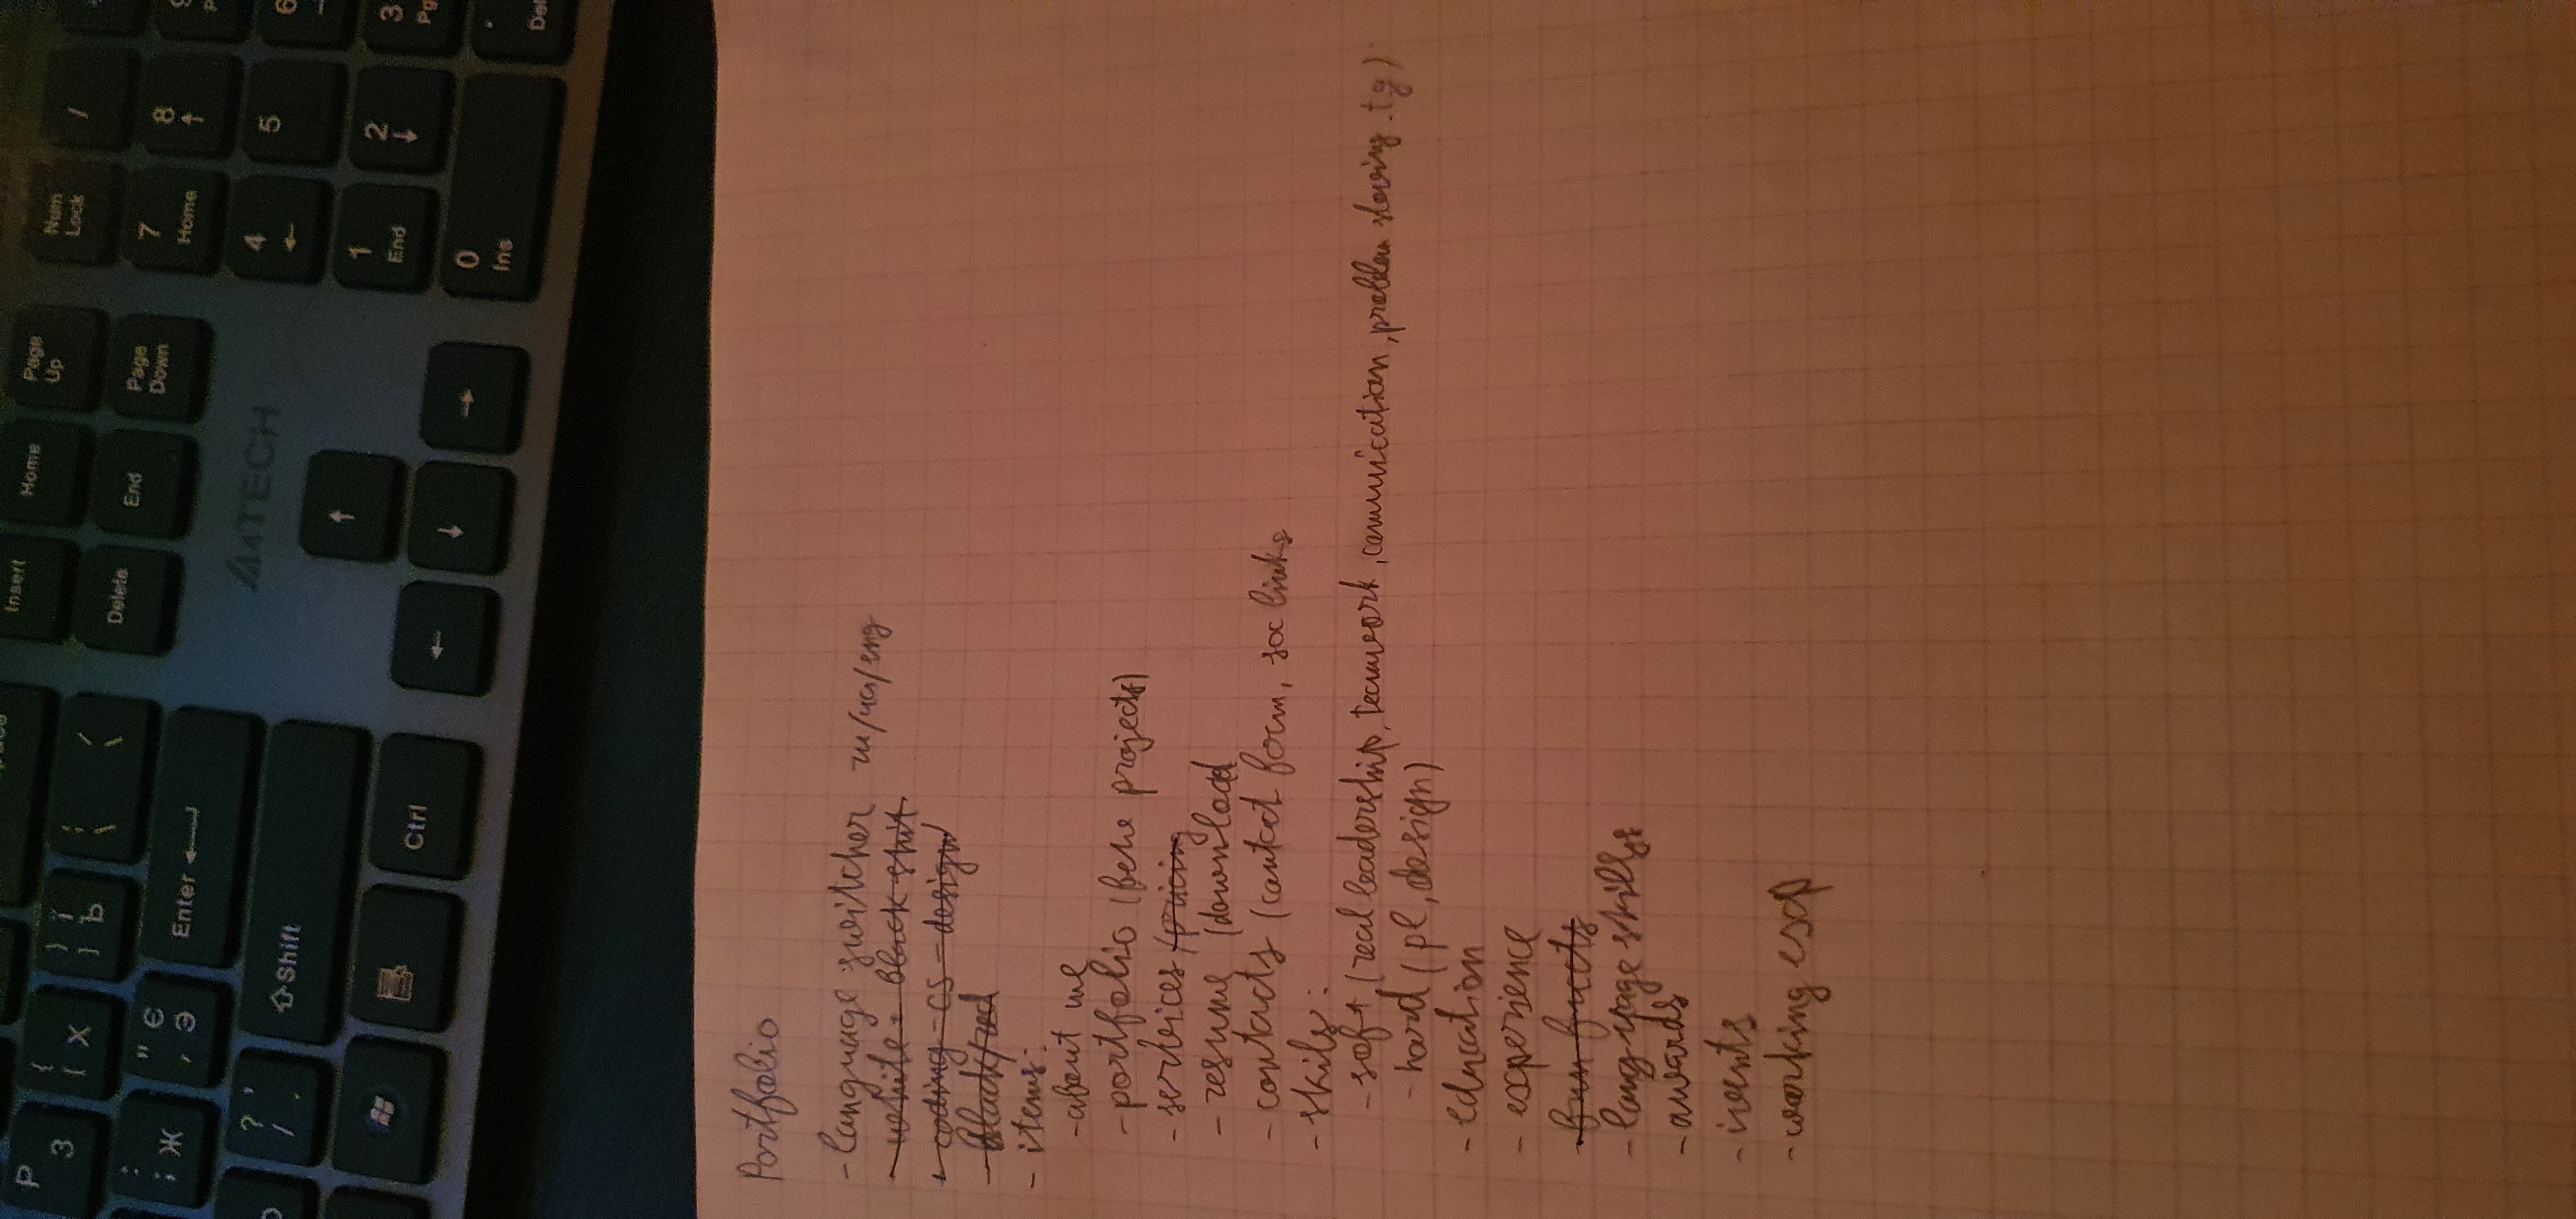 Insert Home Page Up Num Lock /
P З { [ Х } ] Ї Ъ
Delete End Page Down 7 Home 8 ↑
: ; Ж " ' Є Э Enter
A4TECH
4 ← 5 6
? , / . Shift
↑
1 End 2 ↓ 3 Pg
Ctrl ← ↓ →
0 Ins . Del
Portfolio
- language switcher ru/ua/eng
- white - black shit
- coding - cs - design
- black/red
- items:
- about me
- portfolio (behe projects)
- services /pricing
- resume (download
- contacts (contact form, soc links
- skils:
- soft (real leadership, teamwork, communication, problem sloving, tg)
- hard (pl, design)
- education
- experience
- fun facts
- language skills
- awards
- ivents
- working exp